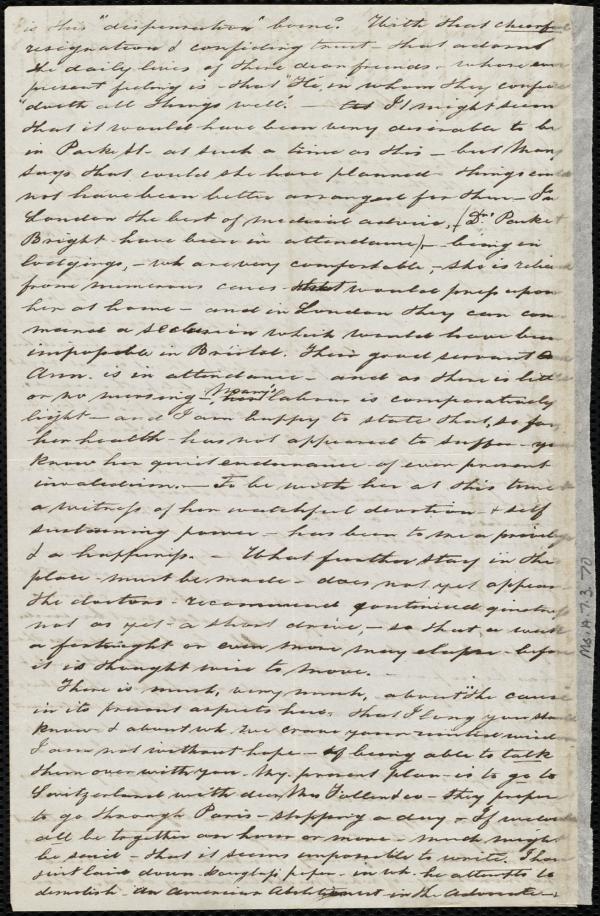 is this "dispensation" borne? With that cheerful
resignation & confiding trust - that adorns
the daily lives of these dear friends - whose ever
present feeling is - that "He, in whom they confide
"doeth all things well. - It might seem
that it would have been very desirable to be
in Park St. at such a time as this - but Mary
says that could she have planned - things could
not have been better arranged for them - In
London the best of medical advice, (Drs Parkes &
Bright have been in attendance) - being in
lodgings, - wh are very comfortable, - she is relieved
from numerous cares that would press upon
her at home - and in London they can com
mand a seclusion which would have been
impossible in Bristol. Their good servant
Ann. is in attendance - and as there is little
or no nursing Mary's labour is comparatively
light - and I am happy to state that, so far
her health - has not appeared to suffer - you
know her quiet endurance of ever present
invalidism. - To be with her at this time
a witness of her watchful devotion - & self
sustaining power - has been to me a privilege
& a happiness. - What further stay in the
place must be made - does not yet appear
the doctors - recommend continued quietness
not as yet - a short drive, - so that, a week
a fortnight or even more may elapse before
it is thought wise to move. -
There is much, very much, about "the cause
in its present aspects here, that I long you should
know & about wh. we crave your united wisdom
I am not without hope - of being able to talk
them over with you. My present plan - is to go to
Switzerland with dear Mrs Follen & co - they propose
to go through Paris - stopping a day - If we could
all be together an hour or more - much might
be said - that it seems impossible to write. I have
just laid down Douglass' paper - in wh. he attempts to
demolish - An American Abolitionist in the Advocate
Ms. A. 7. 3. 70